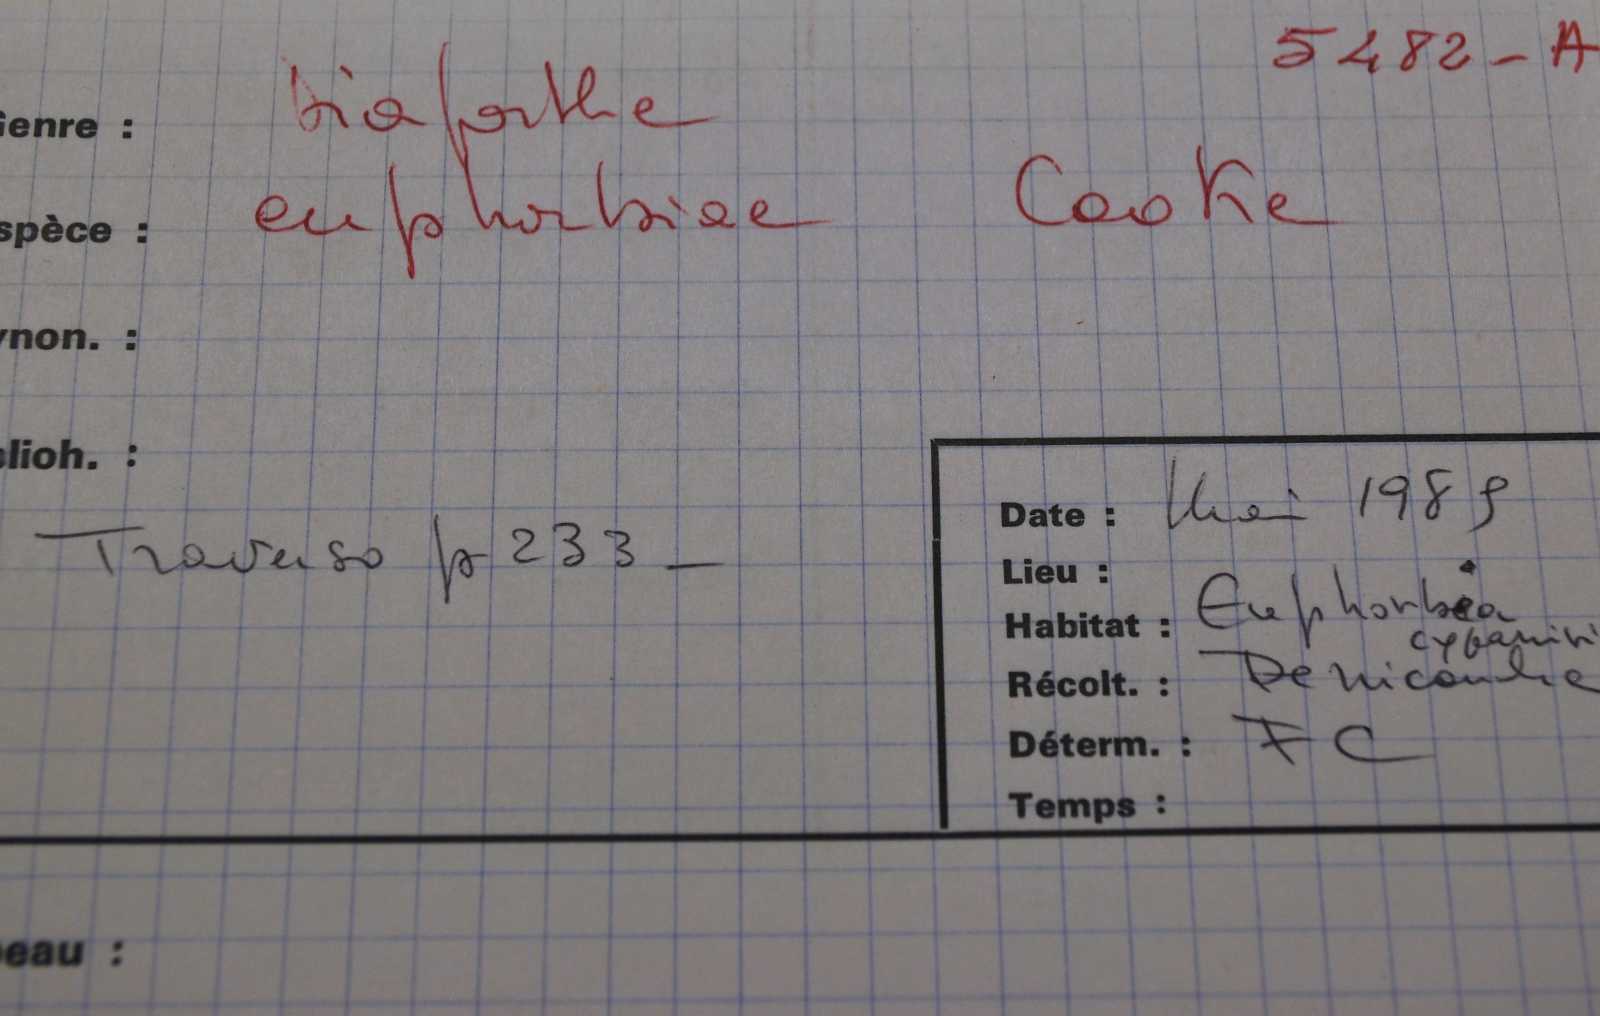 5482-A
Genre : Diaporthe
spèce : euphorbiae Cooke
ynon. :
lioh. :
Traverso p 233 —
Date : Mai 1989
Lieu :
Habitat : Euphorbia
Récolt. :
Déterm. : FC
Temps :
eau :